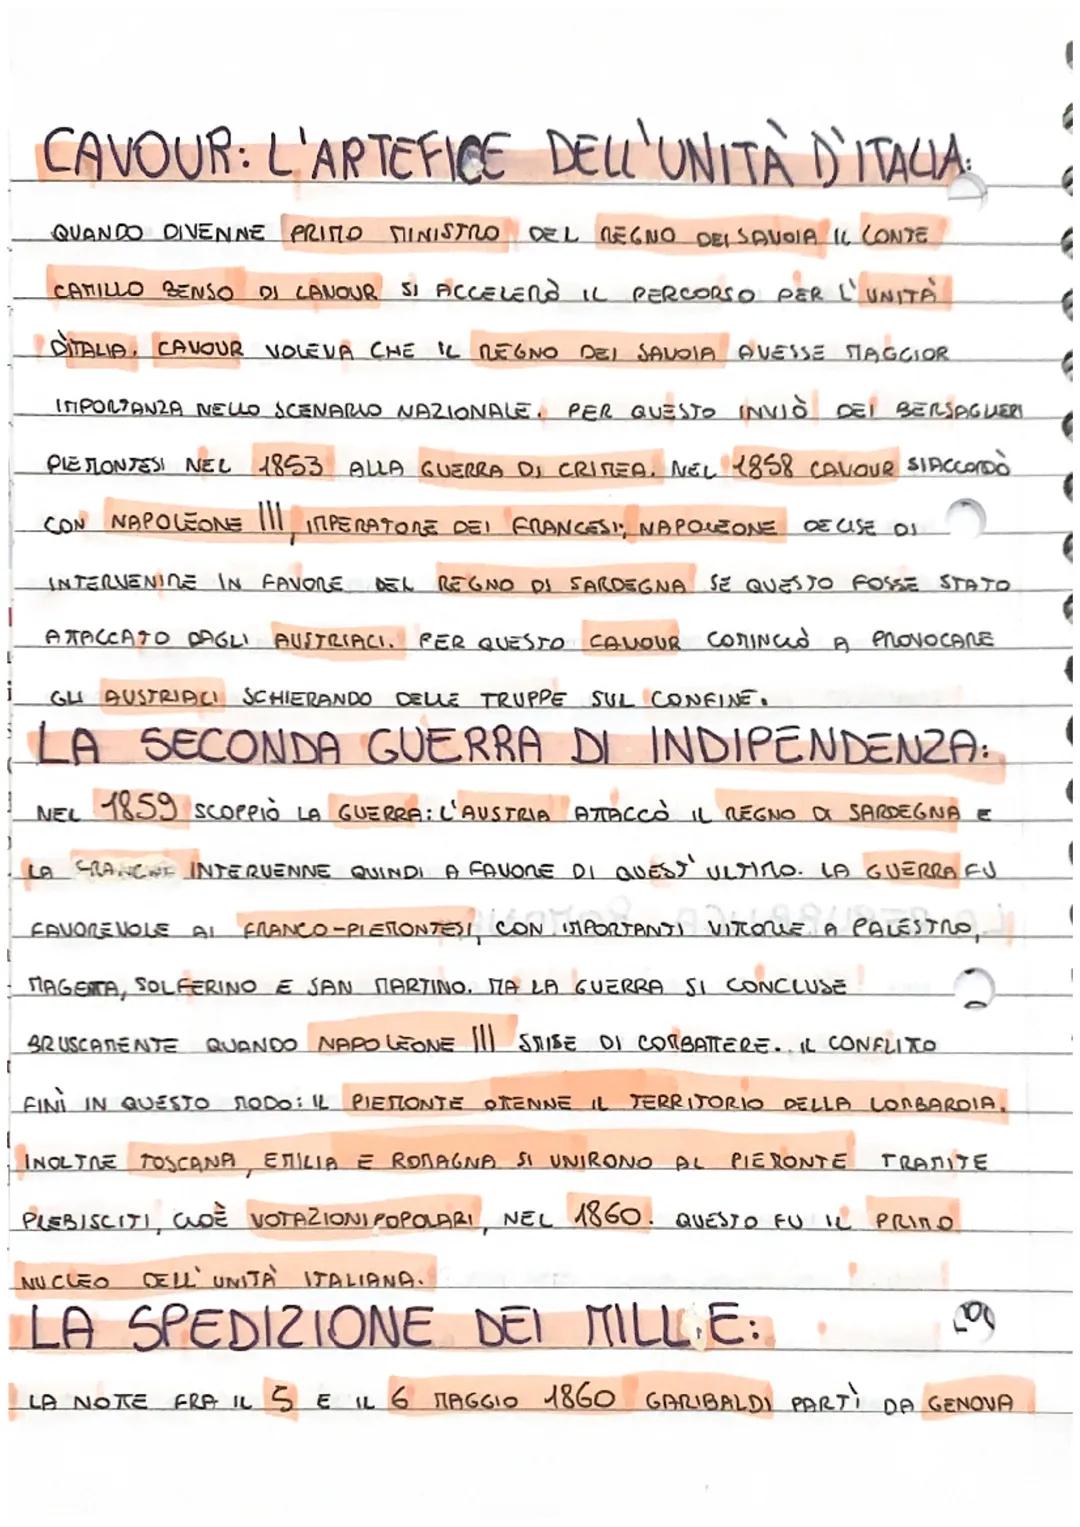 CAVOUR: L'ARTEFICE DELL'UNITÀ D'ITALIA:
QUANDO DIVENNE PRIMO MINISTRO DEL REGNO DEI SAVOIA IL CONTE
CAMILLO BENSO DI CAVOUR SI ACCELERÒ IL PERCORSO PER L'UNITÀ
D'ITALIA. CAVOUR VOLEVA CHE IL REGNO DEI SAVOIA AVESSE MAGGIOR
IMPORTANZA NELLO SCENARIO NAZIONALE. PER QUESTO INVIÒ DEI BERSAGLIERI
PIEMONTESI NEL 1853 ALLA GUERRA DI CRIMEA. NEL 1858 CAVOUR SI ACCORDÒ
CON NAPOLEONE III, IMPERATORE DEI FRANCESI; NAPOLEONE DECISE DI
INTERVENIRE IN FAVORE DEL REGNO DI SARDEGNA SE QUESTO FOSSE STATO
ATTACCATO DAGLI AUSTRIACI. PER QUESTO CAVOUR COMINCIÒ A PROVOCARE
GLI AUSTRIACI SCHIERANDO DELLE TRUPPE SUL CONFINE.
LA SECONDA GUERRA DI INDIPENDENZA:
NEL 1859 SCOPPIÒ LA GUERRA: L'AUSTRIA ATTACCÒ IL REGNO DI SARDEGNA E
LA INTERVENNE QUINDI A FAVORE DI QUEST'ULTIMO. LA GUERRA FU
FAVOREVOLE AI FRANCO-PIEMONTESI, CON IMPORTANTI VITTORIE A PALESTRO,
MAGENTA, SOLFERINO E SAN MARTINO. MA LA GUERRA SI CONCLUSE
BRUSCAMENTE QUANDO NAPOLEONE III SMISE DI COMBATTERE. IL CONFLITTO
FINÌ IN QUESTO MODO: IL PIEMONTE OTTENNE IL TERRITORIO DELLA LOMBARDIA.
INOLTRE TOSCANA, EMILIA E ROMAGNA SI UNIRONO AL PIEMONTE TRAMITE
PLEBISCITI, CIOÈ VOTAZIONI POPOLARI, NEL 1860. QUESTO FU IL PRIMO
NUCLEO DELL'UNITÀ ITALIANA.
LA SPEDIZIONE DEI MILLE:
LA NOTTE FRA IL 5 E IL 6 MAGGIO 1860 GARIBALDI PARTÌ DA GENOVA